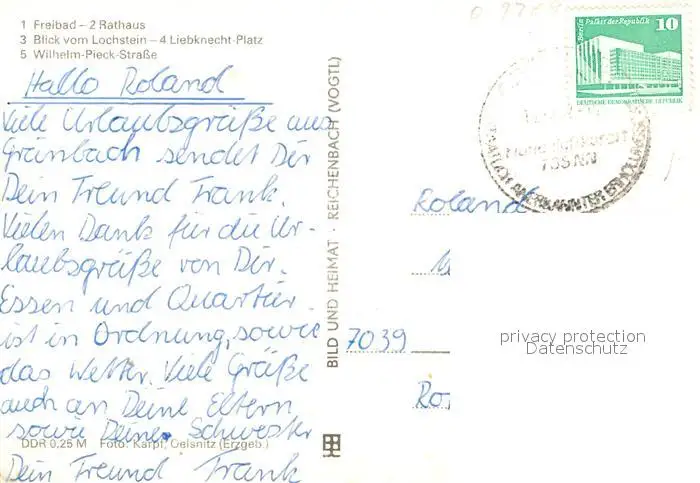 1 Freibad – 2 Rathaus
3 Blick vom Lochstein – 4 Liebknecht-Platz
5 Wilhelm-Pieck-Straße
Hallo Roland
Viele Urlaubsgrüße aus
Grünbach sendet Dir
Dein Freund Frank.
Vielen Dank für die Ur-
laubsgrüße von Dir.
Essen und Quartier
ist in Ordnung, sowie
das Wetter. Viele Grüße
auch an Deine Eltern
sowie Deine Schwester
DDR 0,25 M Foto: Karpf, Oelsnitz (Erzgeb.)
Dein Freund Frank
BILD UND HEIMAT · REICHENBACH (VOGTL)
Berlin Palast der Republik
10
DEUTSCHE DEMOKRATISCHE REPUBLIK
STAATLICH ANERKANNTER
Roland
7039
privacy protection
Datenschutz